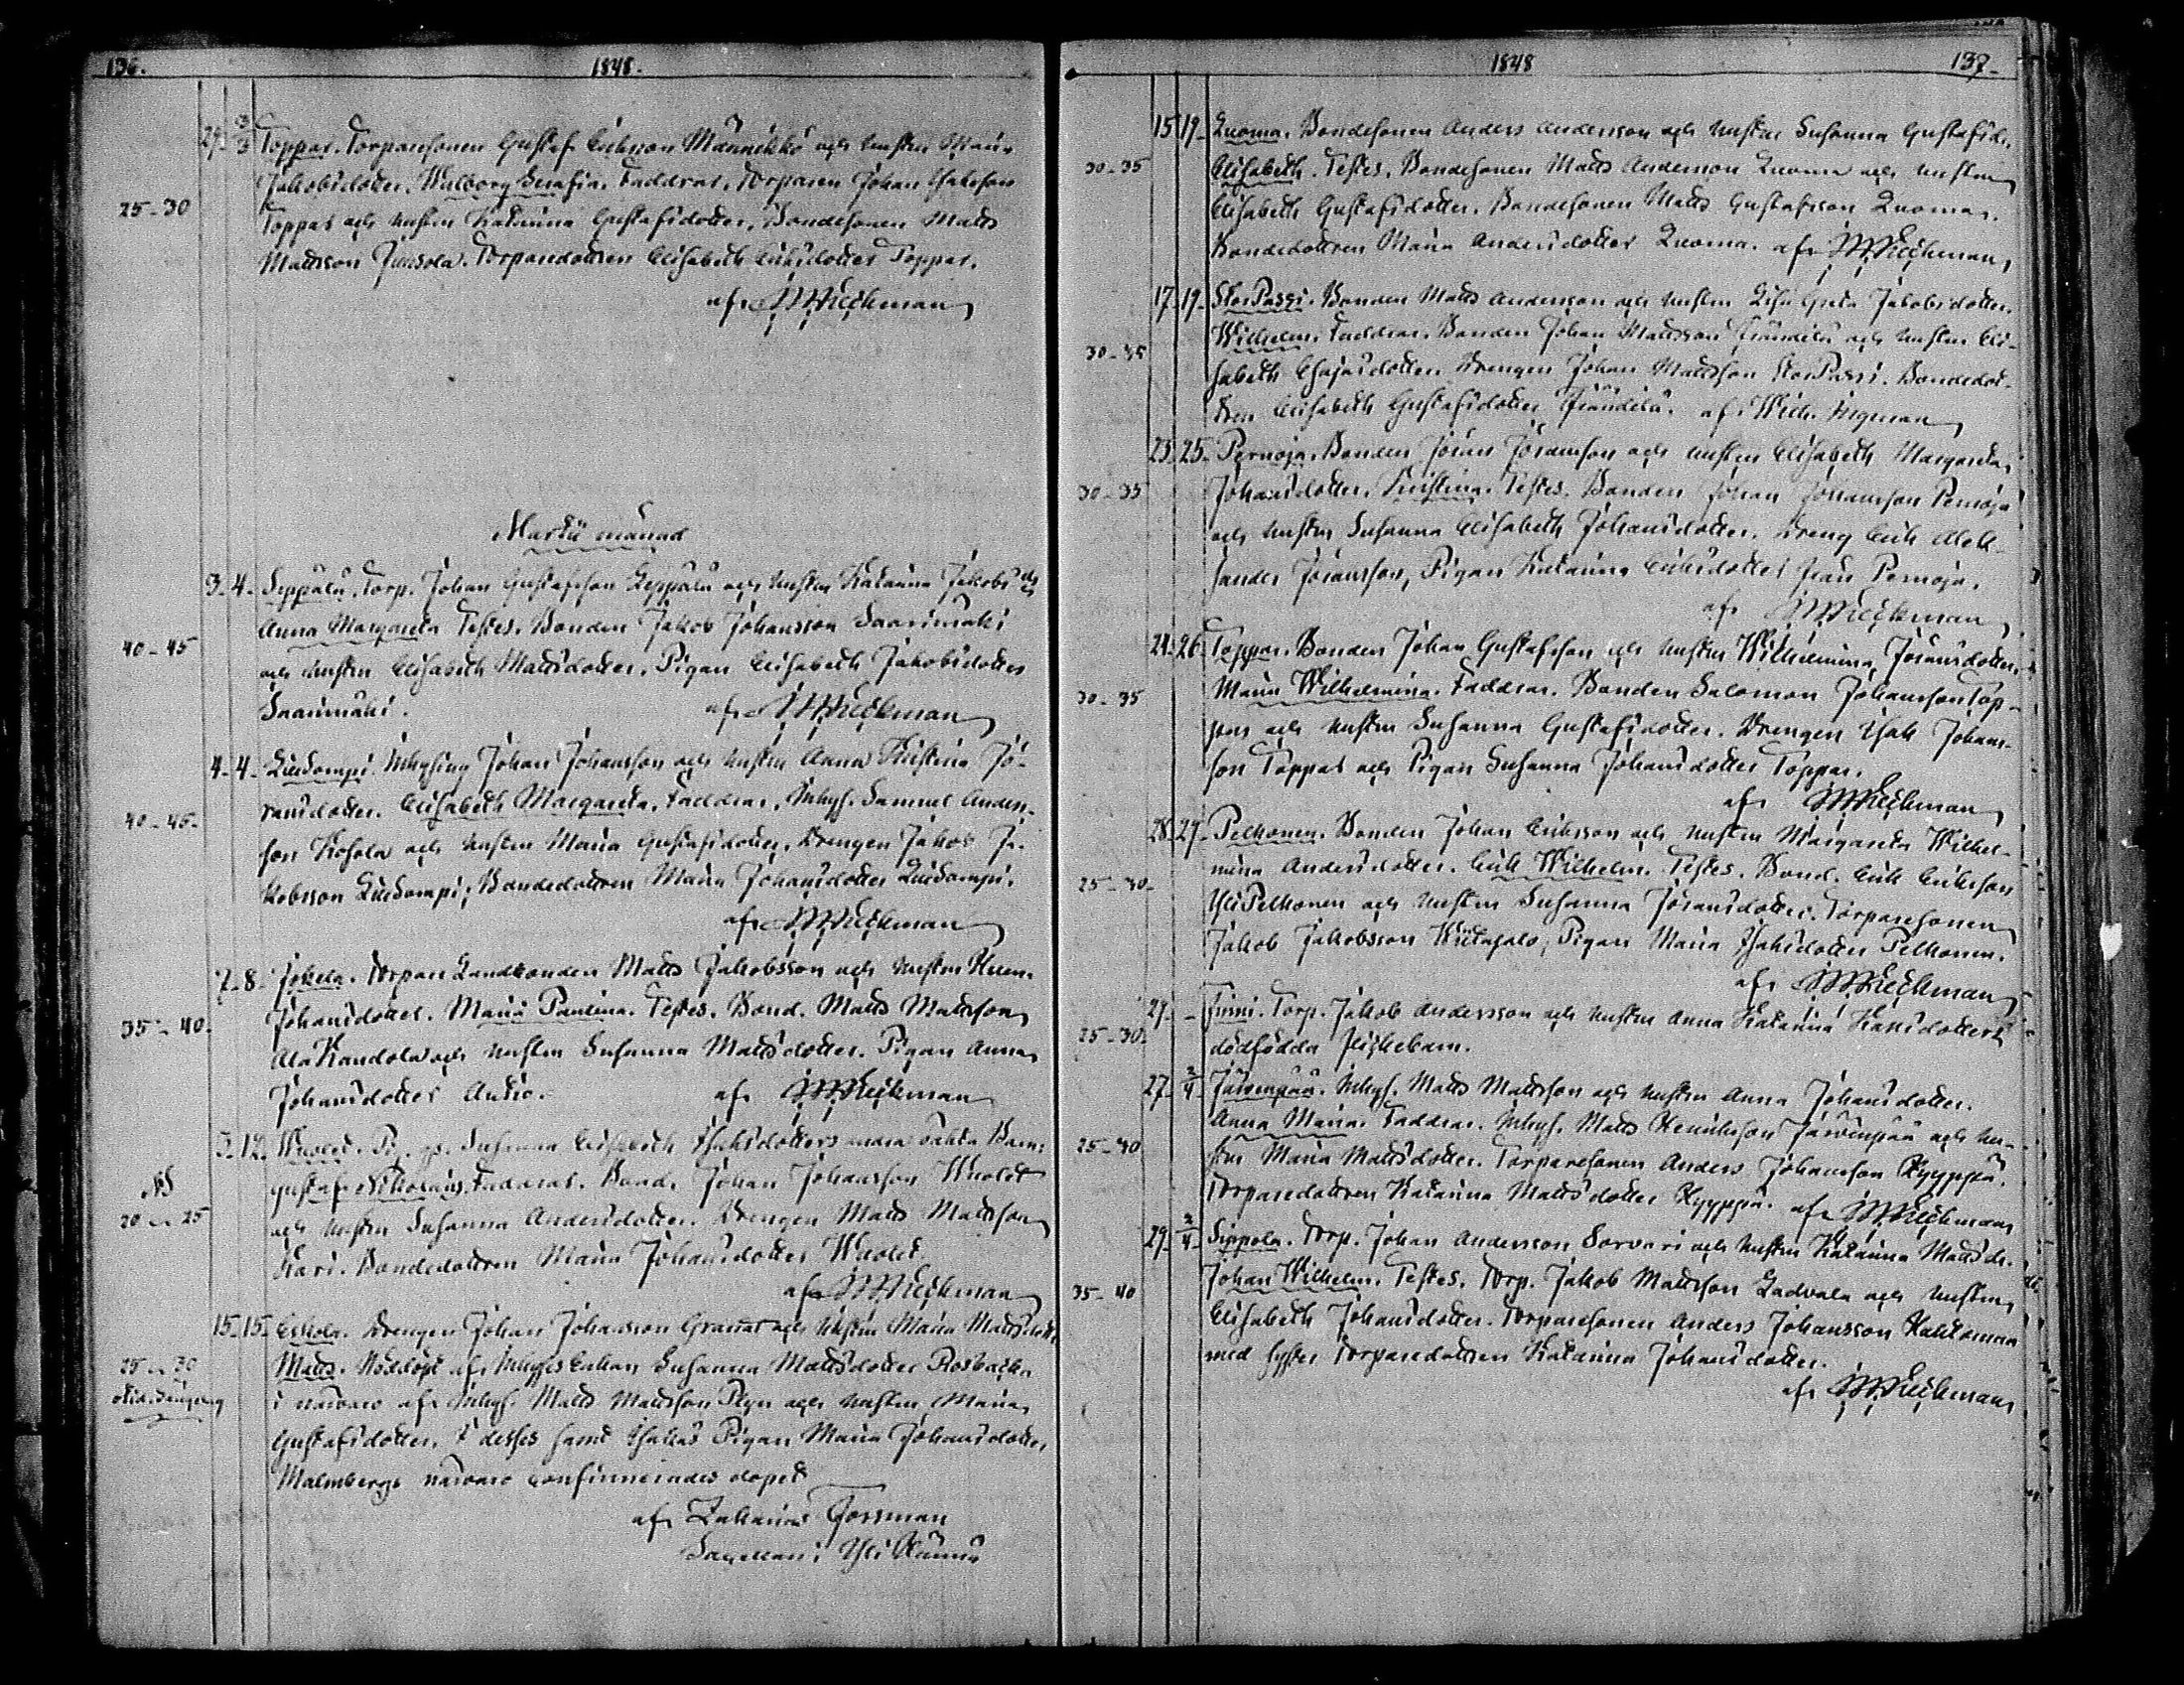 136. 1848.
29. 3/3 Toppar. Torparesonen Gustaf Eriksson Männikkö och hustru Maria
Jakobsdotter. Walborg Serafia. Faddrar. Torparen Johan Isaksson
25-30
Toppar och hustru Katarina Gustafsdotter. Bondesonen Matts
Mattsson Jussola. Torparedottren Elisabeth Eriksdotter Toppar.
af
Martii månad
3. 4. Seppälä. Torp. Johan Gustafsson Seppälä och hustru Katarina Jakobs dr
Anna Margareta Testes. Bonden Jakob Johansson Saarimäki
40-45
och hustru Elisabeth Mattsdotter. Pigan Elisabeth Jakobsdotter
Saarimäki. af
4. 4. Inhysing Johan Johansson och hustru Anna Kristina Jö-
ransdotter. Elisabeth Margareta. Faddrar. Inhys. Samuel Anders-
40-45.
son Kohola och hustru Maria Gustafsdotter, Drengen Jakob Ja-
kobsson Bondedottren Maria Johansdotter
af
7. 8. Jokela. Torpare Landbonden Matts Jakobsson och hustru
Johansdotter. Maria Paulina. Testes. Bond. Matts Mattsson
35-40.
Ala och hustru Susanna Mattsdotter. Pigan Anna
Johansdotter Antio. af
3. 12. Wuolet. Pig. Susanna Elisabeth Isaksdotters Barn:
Gustaf Nikolaus. Faddrar. Bond. Johan Johansson Wuolet
20 25
och hustru Susanna Andersdotter. Drengen Matts Mattsson
Kari. Bondedottren Maria Johansdotter Wuolet.
af
15. 15. Drengen Johan Johansson Granat och hustru Maria Mattsdotter
Matts. Nöddöpt af Inhyses Enkan Susanna Mattsdotter
25 30
i närvaro af Inhys. Matts Mattsson och hustru Maria
Gustafsdotter. I desses samt Pigan Maria Johansdotter
Malmbergs närvaro confirmerades dopet
af Zakarias Forsman
Sacellan i
1848 137.
15 19. Luoma. Bondesonen Anders Andersson och hustru Susanna Gustafsdr.
30-35
Elisabeth. Testes. Bondesonen Matts Andersson Luoma och hustru
Elisabeth Gustafsdotter. Bondesonen Matts Gustafsson Luoma.
Bondedottren Maria Andersdotter Luoma. af
17. 19. StorPassi. Bonden Matts Andersson och hustru Lisa Greta Jakobsdotter.
Wilhelm. Faddrar. Bonden Johan Mattsson Frändilä och hustru Eli-
30-35
sabeth Esajasdotter. Drengen Johan Mattsson StorPassi. Bondedot-
tren Elisabeth Gustafsdotter Frändilä. af Wilh. Ingman
23. 25. Pernoja. Bonden Jöran Jöransson och hustru Elisabeth Margareta
30-35
Johansdotter. Kristina. Testes. Bonden Johan Johansson Pernoja
och hustru Susanna Elisabeth Johansdotter. Dreng Erik Alek-
sander Jöransson, Pigan Katarina Eriksdotter från Pernoja.
af
24. 26. Toppar. Bonden Johan Gustafsson och hustru Wilhelmina Jöransdotter.
30-35
Maria Wilhelmina. Faddrar. Bonden Salomon Johansson Top-
pars och hustru Susanna Gustafsdotter. Drengen Isak Johans-
son Toppar och Pigan Susanna Johansdotter Toppar.
af
28. 27. Pelkonen. Bonden Johan Eriksson och hustru Margareta Wilhel-
mina Andersdotter. Erik Wilhelm. Testes. Bond. Erik Eriksson
25-30.
YliPelkonen och hustru Susanna Jöransdotter. Torparesonen
Jakob Jakobsson Wiitasalo, Pigan Maria Isaksdotter Pelkonen.
af
29. - Finni. Torp. Jakob Andersson och hustru Anna Katarina
25-30.
dödfödda flickebarn.
27. 2/4 Järvenpää. Inhys. Matts Mattsson och hustru Anna Johansdotter.
Anna Maria. Faddrar. Inhys. Matts Henriksson Järvenpää och hu-
25-40
stru Maria Mattsdotter. Torparesonen Anders Johansson Kyyppä.
Torparedottren Katarina Mattsdotter Kyyppä. af
29. 2/4 Sippola. Torp. Johan Andersson Sorvari och hustru Katarina Matts dr.
Johan Wilhelm. Testes. Torp. Jakob Mattsson Ladvala och hustru
35-40
Elisabeth Johansdotter. Torparesonen Anders Johansson
med syster Torparedottren Katarina Johansdotter.
af